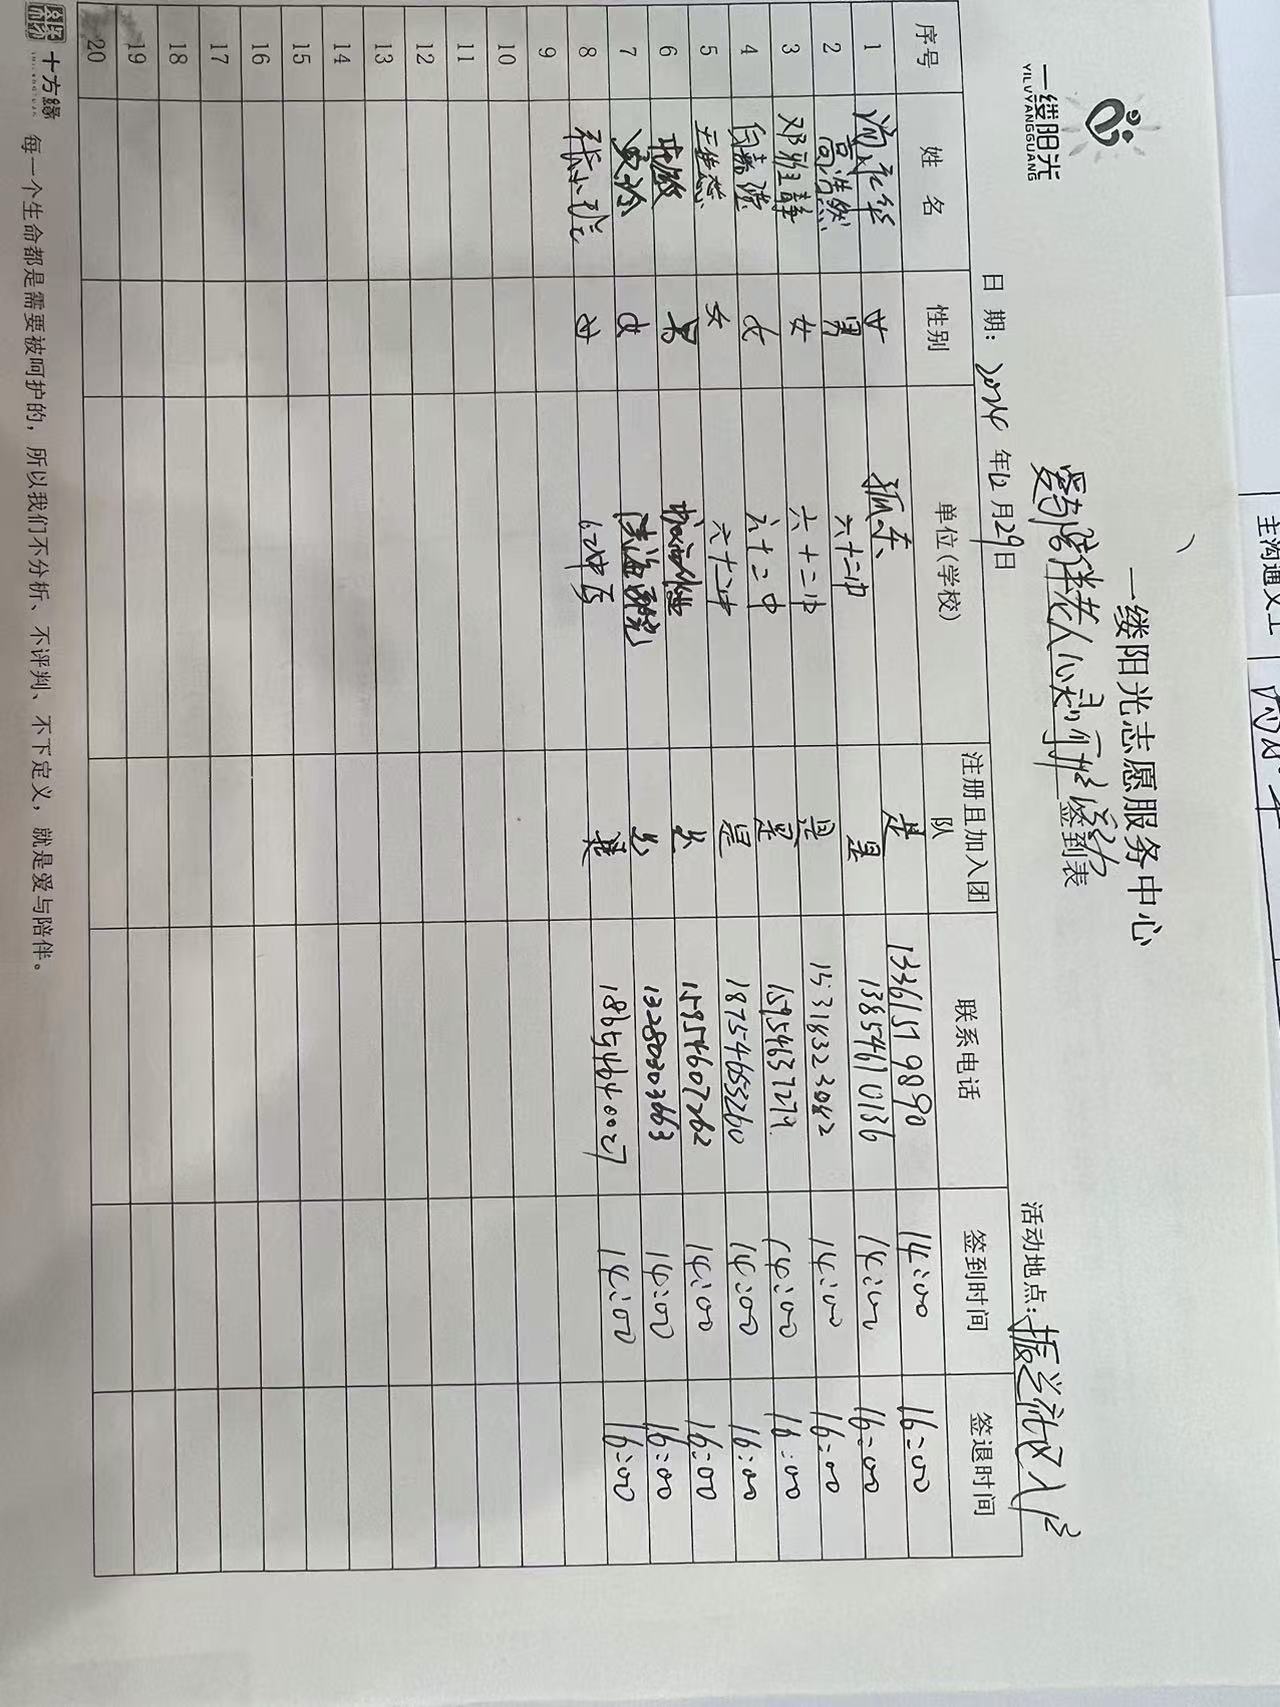 一缕阳光
YILVYANGGUANG
一缕阳光志愿服务中心
爱与陪伴老人心灵呵护活动签到表
日期：2024年12月29日 活动地点：振兴社区入户
序号 姓名 性别 单位(学校) 注册且加入团队 联系电话 签到时间 签退时间
1 女 孤东 是 13361519890 14:00 16:00
2 高浩然 男 六十二中 是 13854610136 14:00 16:00
3 邓雅静 女 六十二中 是 15318323082 14:00 16:00
4 女 六十二中 是 14:00 16:00
5 女 六十二中 是 18754655260 14:00 16:00
6 男 15954607262 14:00 16:00
7 女 13280303663 14:00 16:00
8 女 是 18654640027 14:00 16:00
9
10
11
12
13
14
15
16
17
18
19
20
十方缘 每一个生命都是需要被呵护的，所以我们不分析、不评判、不下定义，就是爱与陪伴。
主沟通义工